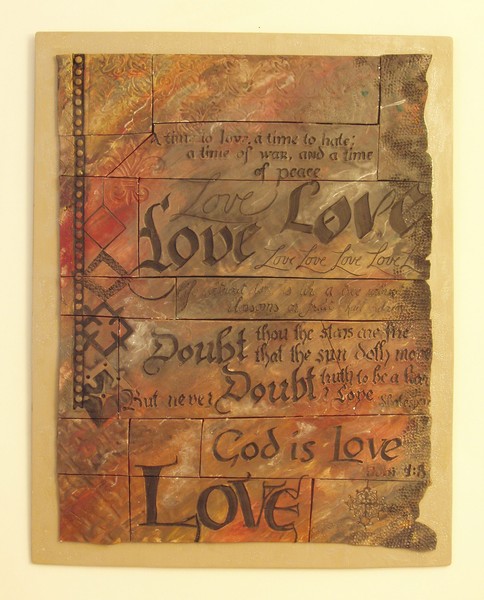 A time to love, a time to hate;
a time of war, and a time
of peace
Love
Love Love
Love Love Love Love
Doubt thou the stars are fire
that the sun doth move
Doubt truth to be a liar
But never Doubt I Love
God is Love
John 4:8
LOVE